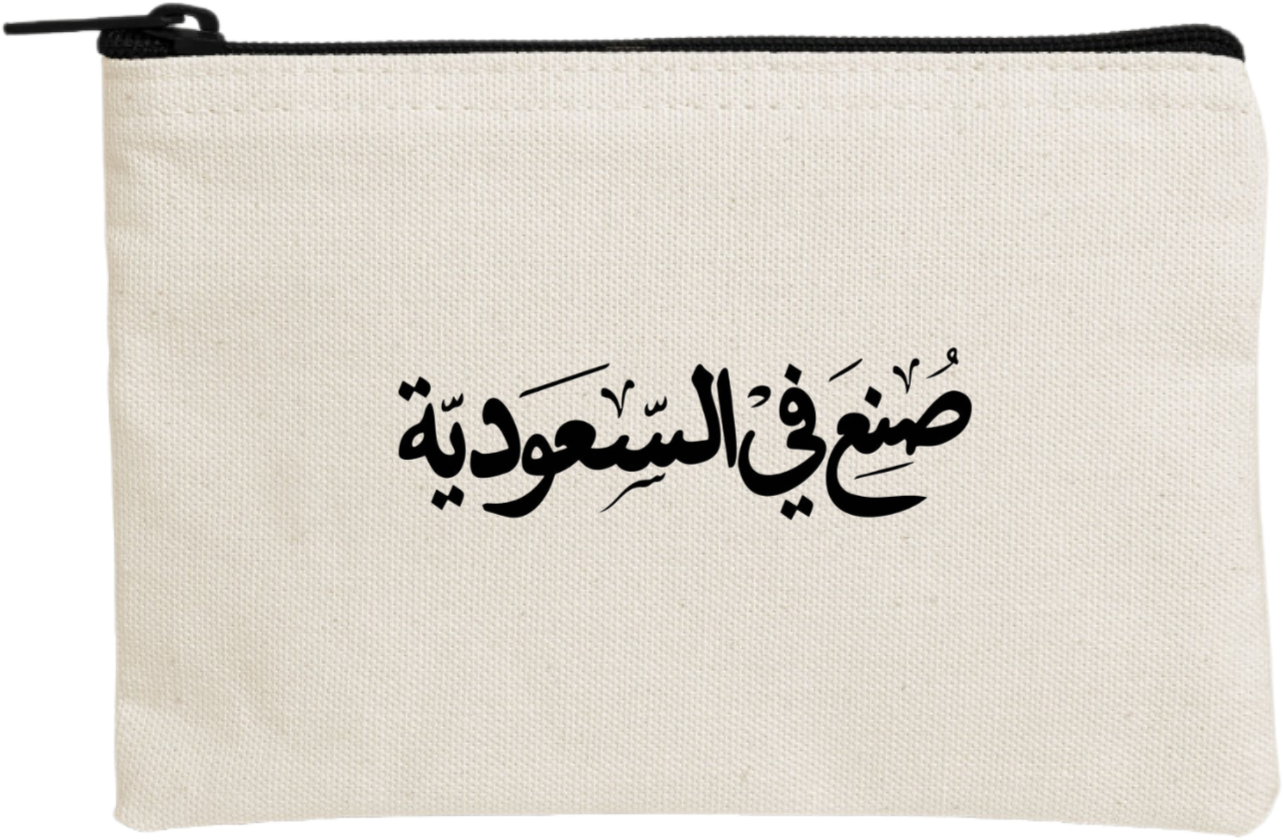 صُنِعَ فيْ السِّعَوديّة